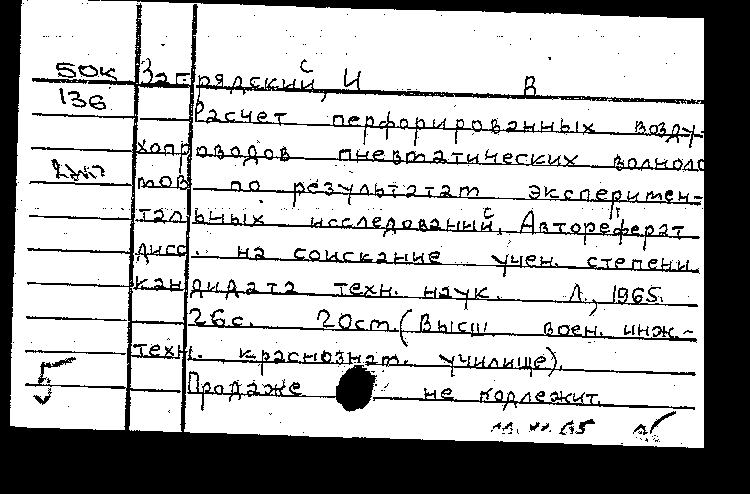 50к Запрядский, И В
136 Расчет перфорированных возду-
хопроводов пневматических волноло
мов по результатам эксперимен-
тальных исследований. Автореферат
дисс. на соискание учен. степени
кандидата техн. наук. Л., 1965.
26с. 20см. (Высш. воен. инж.-
техн. краснознам. училище).
Продаже не подлежит.
5